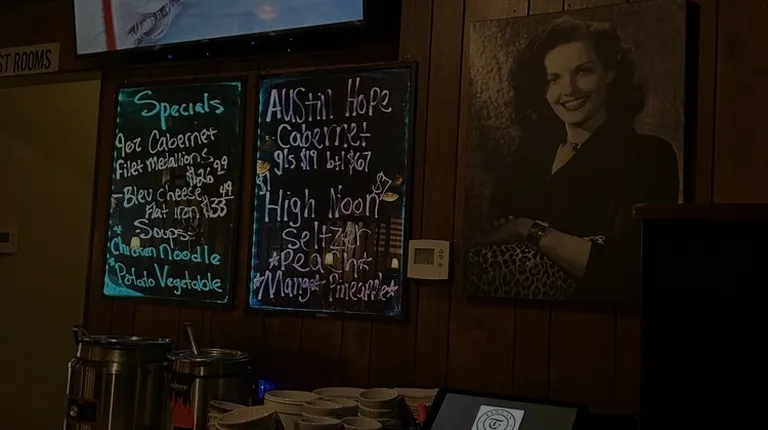 ST ROOMS
Specials
9oz Cabernet
Filet Medallions
$26 29
Bleu cheese
Flat iron $33 49
Soups:
* Chicken Noodle
* Potato Vegetable
AUStin Hope
Cabernet
gls $19 btl $67
$7
High Noon
Seltzer
*Peach*
*Mango* Pineapple*